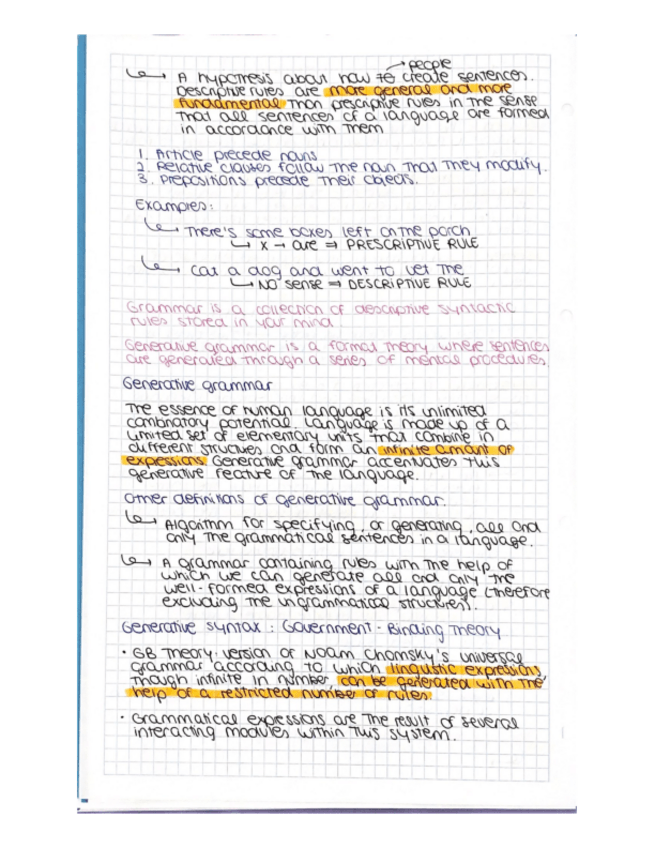 → people
↳ A hypothesis about how to create sentences.
Descriptive rules are more general and more
fundamental than prescriptive rules in the sense
that all sentences of a language are formed
in accordance with them
1. Article precede nouns
2. Relative clauses follow the noun that they modify.
3. Prepositions precede their objects.
Examples:
↳ There's some boxes left on the porch
↳ X → are ⇒ PRESCRIPTIVE RULE
↳ Cat a dog and went to vet the
↳ NO sense ⇒ DESCRIPTIVE RULE
Grammar is a collection of descriptive syntactic
rules stored in your mind.
Generative grammar is a formal theory where sentences
are generated through a series of mental procedures.
Generative grammar
The essence of human language is its unlimited
combinatory potential. Language is made up of a
limited set of elementary units that combine in
different structures and form an infinite amount of
expressions. Generative grammar accentuates this
generative feature of the language.
Other definitions of generative grammar.
↳ Algorithm for specifying, or generating, all and
only the grammatical sentences in a language.
↳ A grammar containing rules with the help of
which we can generate all and only the
well-formed expressions of a language (therefore
excluding the ungrammatical structures).
Generative syntax: Government-Binding Theory
· GB Theory: version of Noam Chomsky's universal
grammar according to which linguistic expressions,
though infinite in number, can be generated with the
help of a restricted number of rules.
· Grammatical expressions are the result of several
interacting modules within this system.